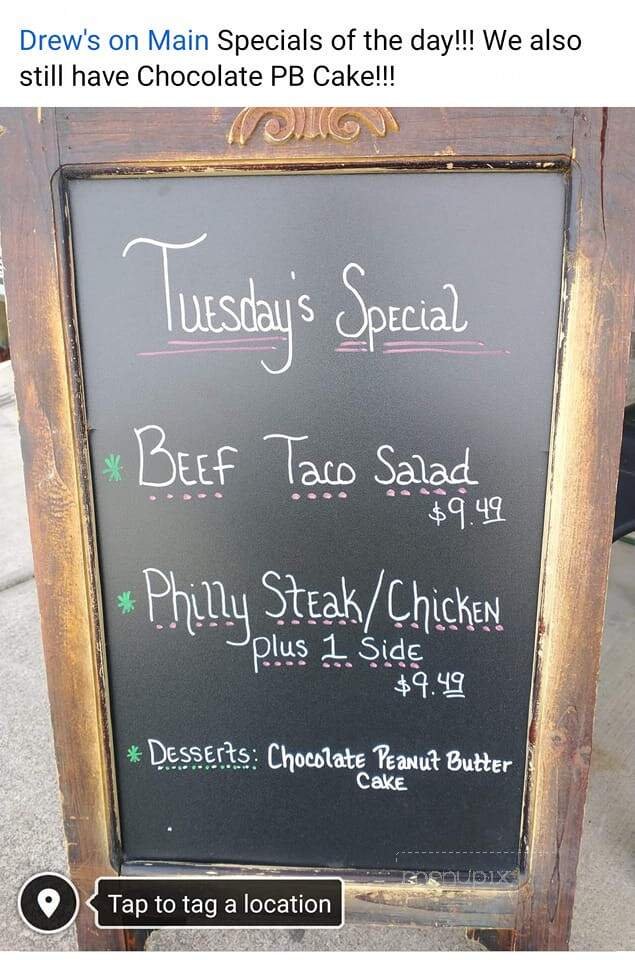 Drew's on Main Specials of the day!!! We also
still have Chocolate PB Cake!!!
Tuesday's Special
* Beef Taco Salad
$9.49
* Philly Steak/Chicken
plus 1 Side
$9.49
* Desserts: Chocolate Peanut Butter
Cake
menupix
Tap to tag a location